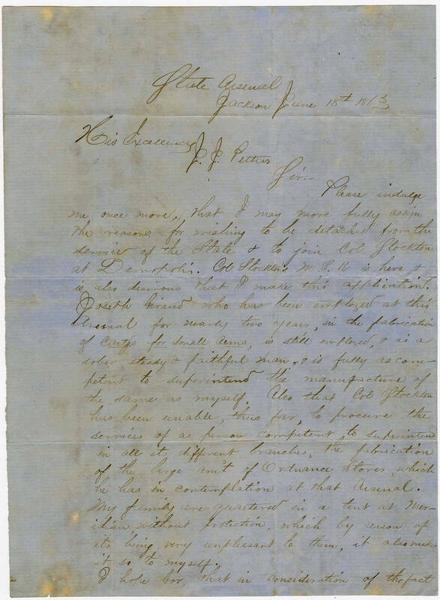 State Arsenal
Jackson June 18th 1863
His Excellency
J. J. Pettus
Sir
Please indulge
me, once more, that I may more fully assign
the reasons for wishing to be detached from the
service of the State & to join Col Stockton
at Demopolis. Col Stockton is here &
is also desirous that I make this application.
Joseph who has been employed at this
Arsenal for nearly two years, in the fabrication
of Cartgs for Small Arms, is still employed, & is a
sober steady & faithful man, & is fully as com-
petent to superintend the manufacture of
the same as myself. Also that Col Stockton
has been unable, thus far, to procure the
services of a person competent to superintend
in all its different branches, the fabrication
of the large amt of Ordnance Stores which
he has in contemplation at that Arsenal.
My family are quartered in a tent at Mer-
idian without protection which by reason of
its being very unpleasant to them, it also makes
it so to myself.
I hope Gov. that in consideration of the fact